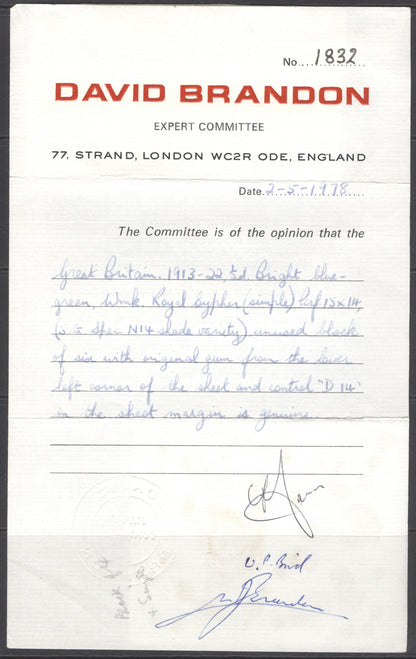 No. 1832
DAVID BRANDON
EXPERT COMMITTEE
77, STRAND, LONDON WC2R ODE, ENGLAND
Date 2-5-1978
The Committee is of the opinion that the
Great Britain. 1913-22, ½d. Bright blue-
green, Wmk. Royal Cypher (simple) Perf 15x14,
(S G Spec N14 shade variety) unused block
of six with original gum from the lower
left corner of the sheet and control "D 14"
in the sheet margin is genuine.
Block of 4